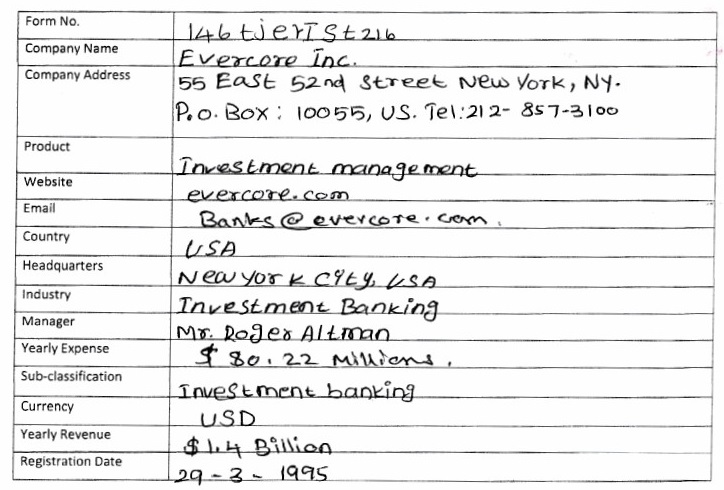 Form No. 146tjerTSt216
Company Name Evercore Inc.
Company Address 55 East 52nd Street New York, NY.
P.O. Box: 10055, US. Tel:212-857-3100
Product Investment management
Website evercore.com
Email Banks@evercore.com.
Country USA
Headquarters New York City, USA
Industry Investment Banking
Manager Mr. Roger Altman
Yearly Expense $ 80.22 Millions.
Sub-classification Investment banking
Currency USD
Yearly Revenue $1.4 Billion
Registration Date 29-3-1995